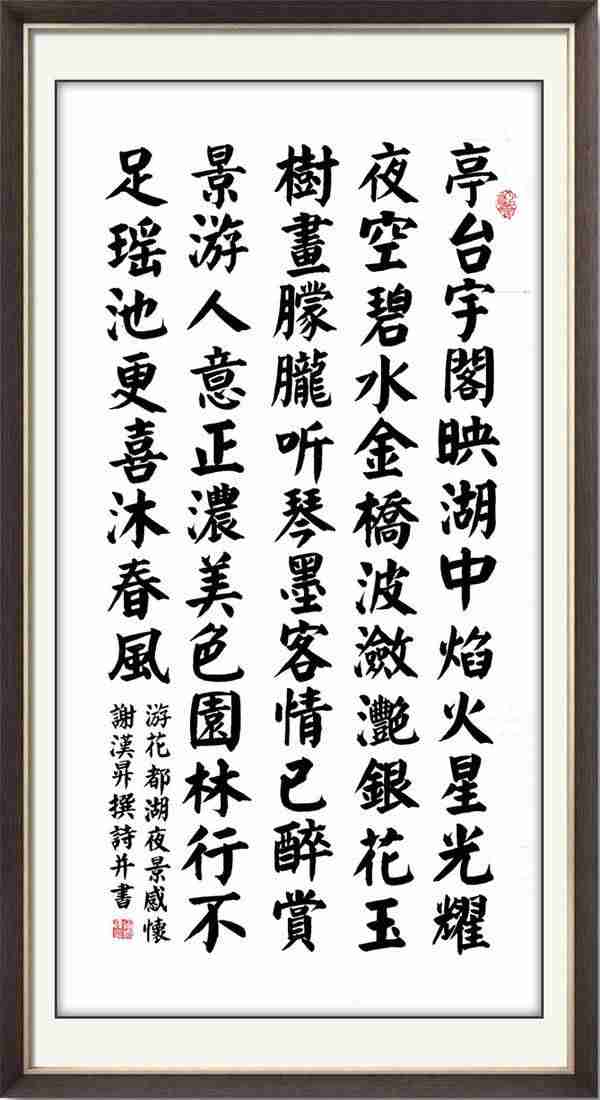 亭台宇閣映湖中焰火星光耀
夜空碧水金橋波瀲灩銀花玉
樹畫朦朧听琴墨客情已醉賞
景游人意正濃美色園林行不
足瑶池更喜沐春風
游花都湖夜景感懷
謝漢昇撰詩并書